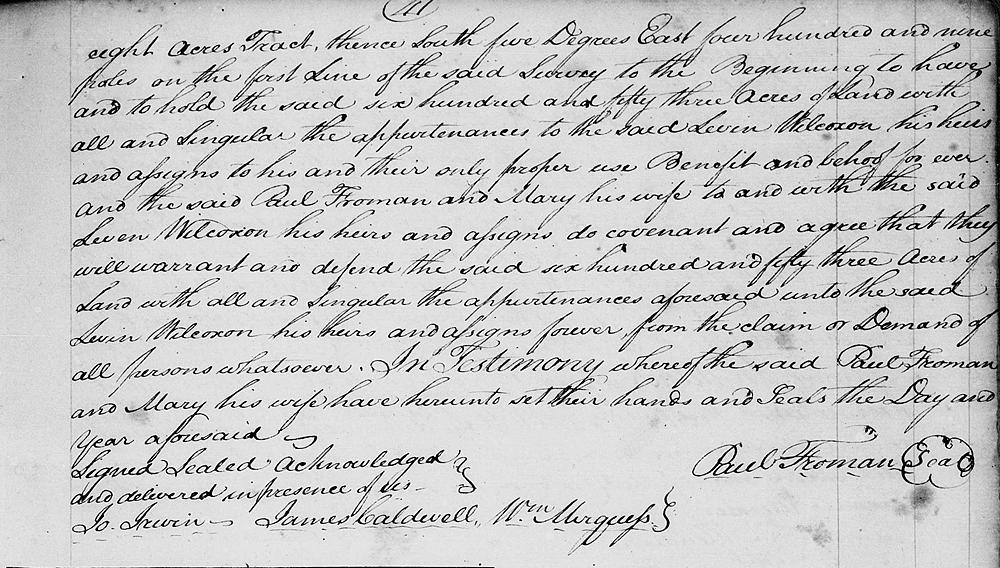 411
eight Acres Tract, thence South five Degrees East four hundred and nine
Poles on the first Line of the said Survey to the Beginning to have
and to hold the said six hundred and fifty three Acres of Land with
all and Singular the appurtenances to the said Levin Wilcoxon his heirs
and assigns to his and their only proper use Benefit and behoof for ever.
and the said Paul Froman and Mary his wife to and with the said
Leven Wilcoxon his heirs and assigns do covenant and agree that they
will warrant and defend the said six hundred and fifty three Acres of
Land with all and Singular the appurtenances aforesaid unto the said
Levin Wilcoxon his heirs and assigns forever from the claim or Demand of
all persons whatsoever. In Testimony whereof the said Paul Froman
and Mary his wife have hereunto set their hands and Seals the Day and
Year aforesaid
Signed Sealed Acknowledged
and delivered in presence of us
Paul Froman Seal
Jo. Irwin James Caldwell, Wm Murquess